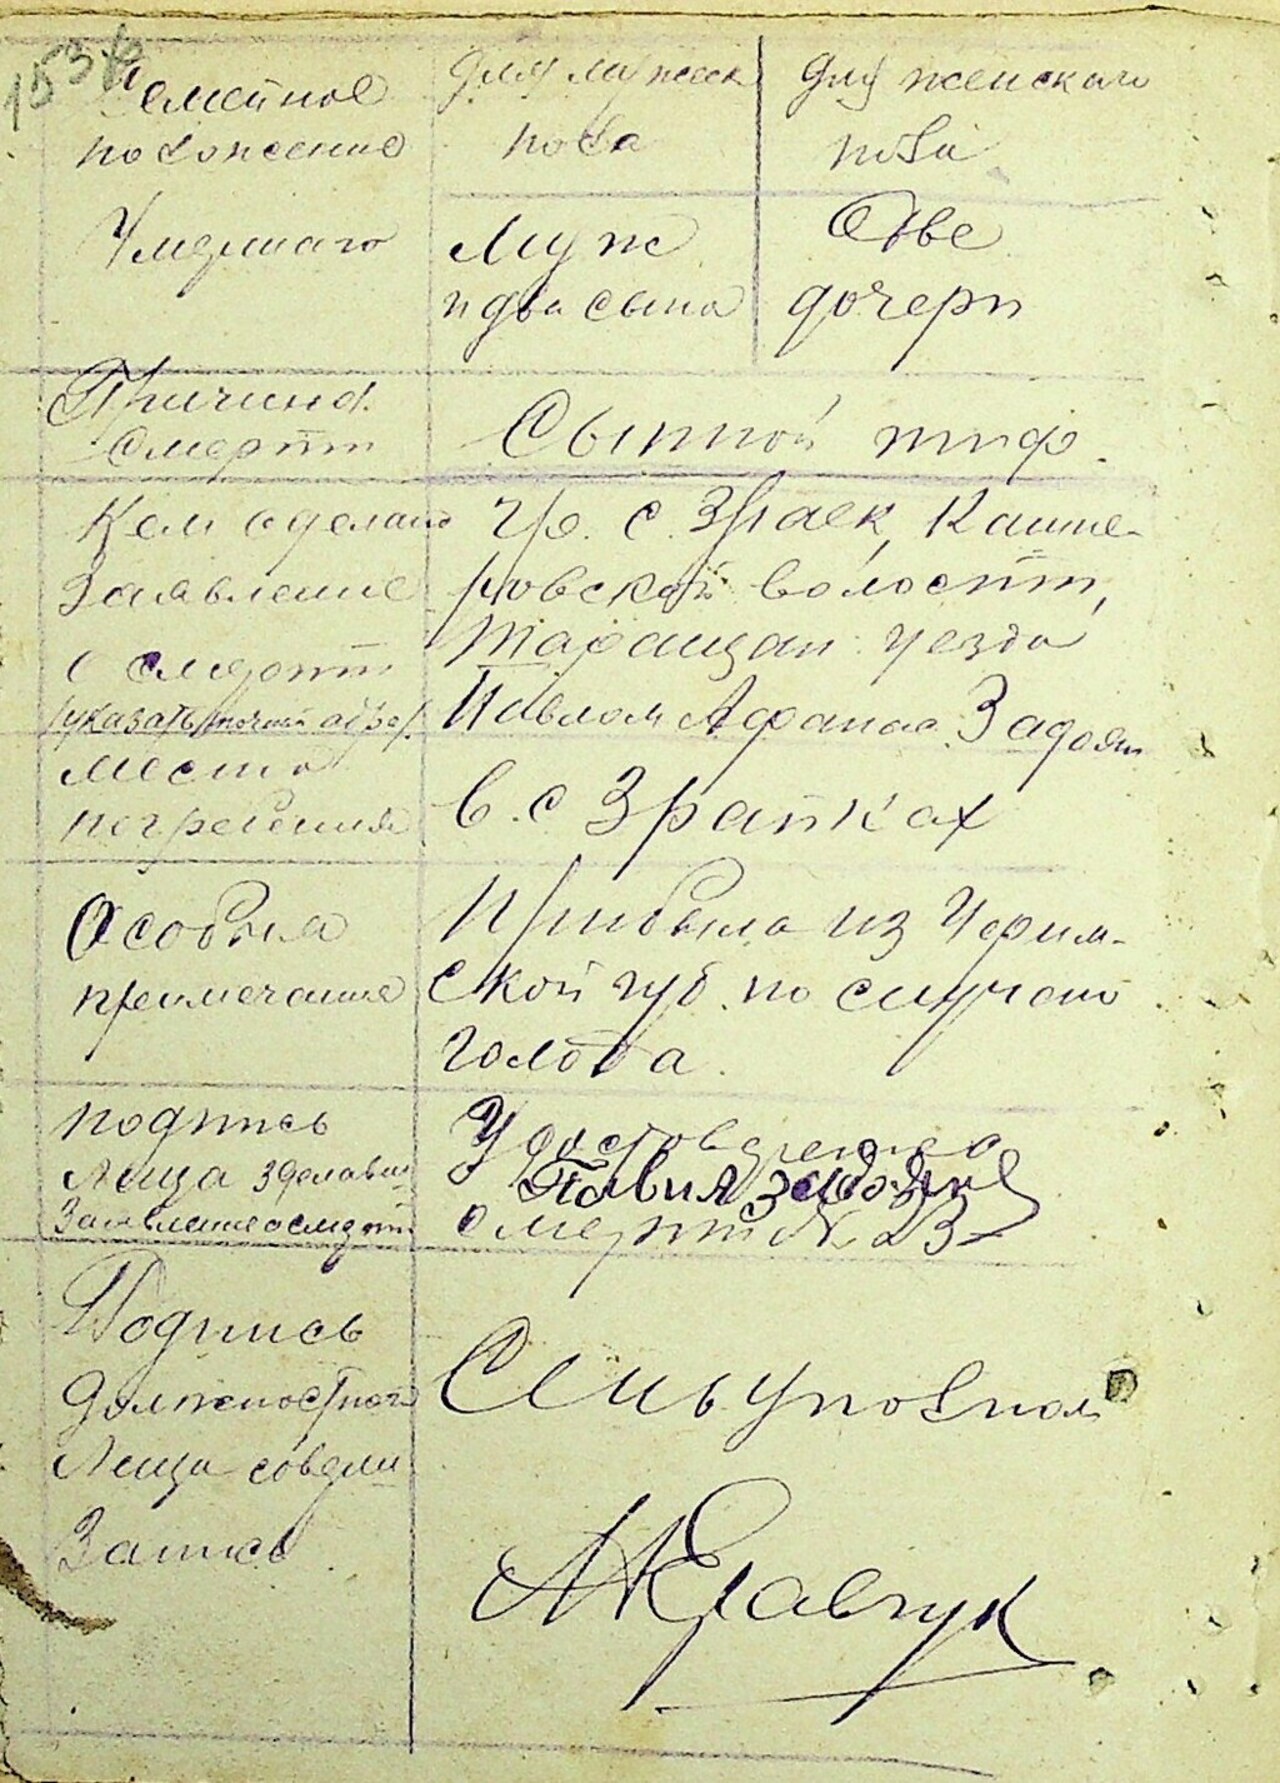 153
Семейное
положение
Умершаго
Для мужеск
пола
Для женскаго
пола
Муж
и два сына
Две
дочери
Причина
Смерти
Сыпной тиф.
Кем сделано
Заявление
о смерти
/указать точный адрес/
гр. с. Зраек, Каше-
ровской волости,
Таращан уезда
Павлом Афанас. Задоян
Место
погребения
в с Зрайках
Особыя
примечание
Прибыла из
ской губ. по случаю
голода.
подпись
Лица зделавш
Заявление о смерти
Удостоверение о
Павил
смерти № 23
Подпись
Должностного
Лица соверш
Запись
Сельуполном
Кравчук